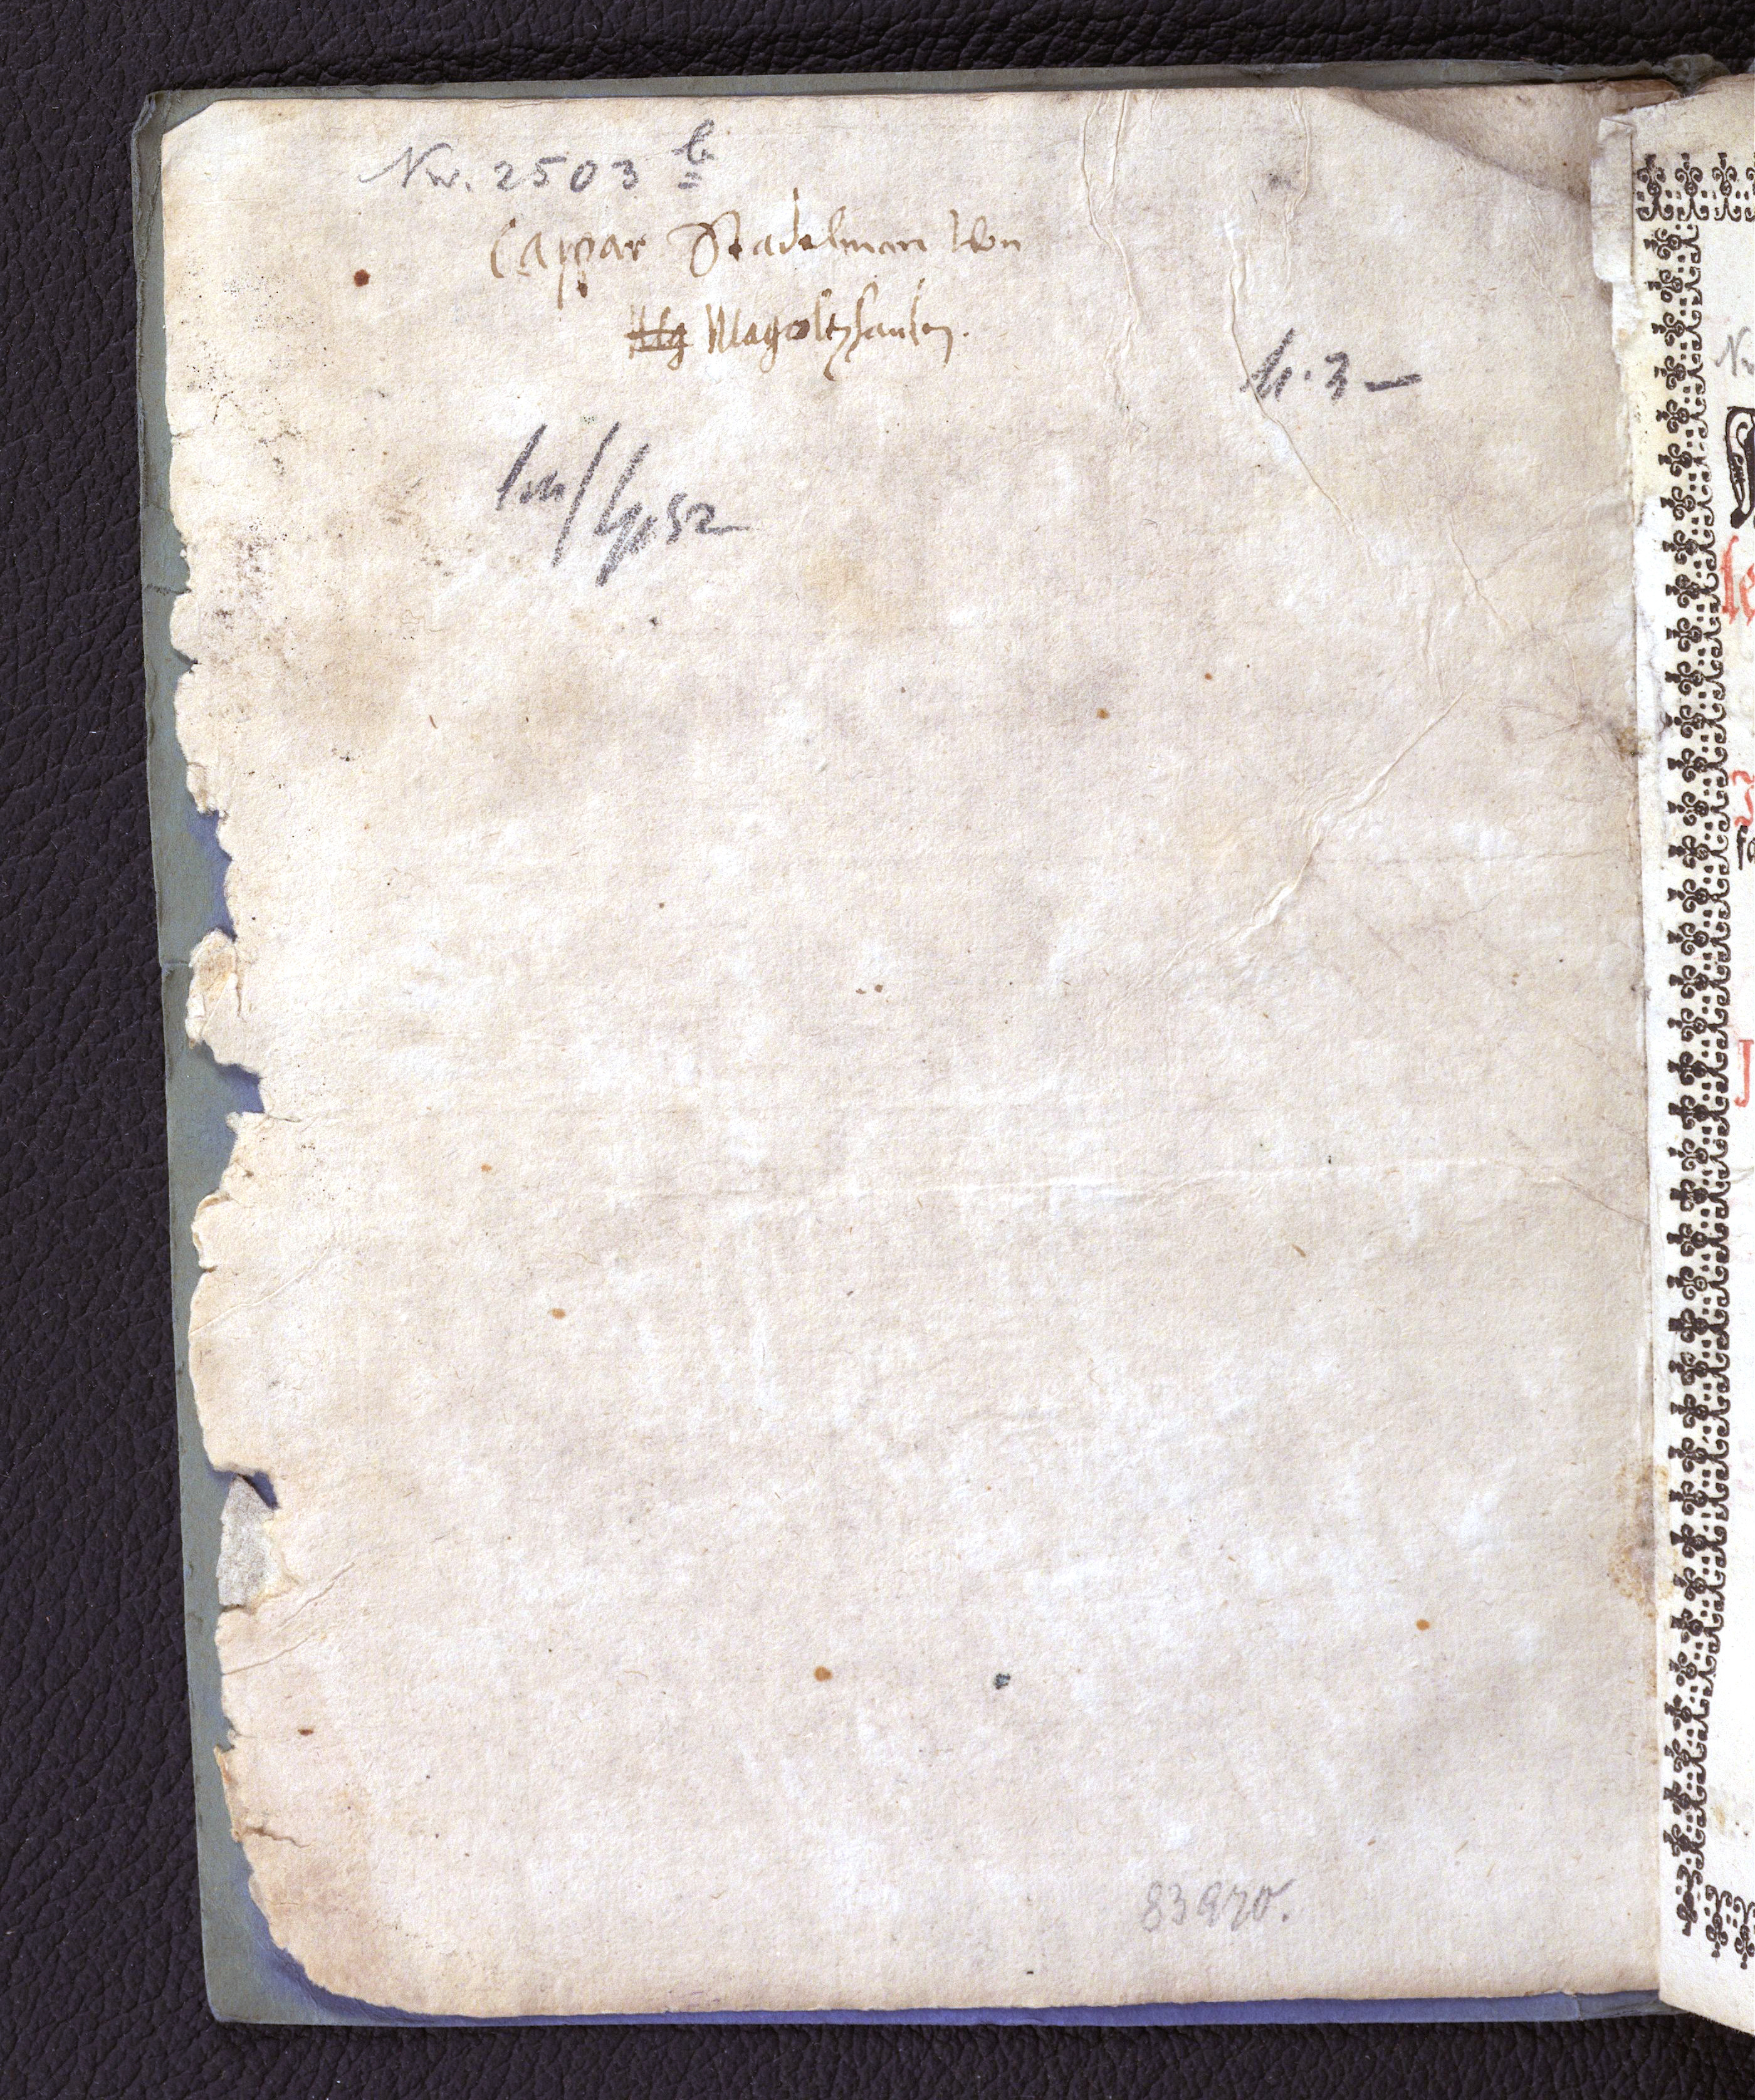 Nr. 2503 b
Caspar Stadelman von
Magoltzhausen.
3 —
52
83920.